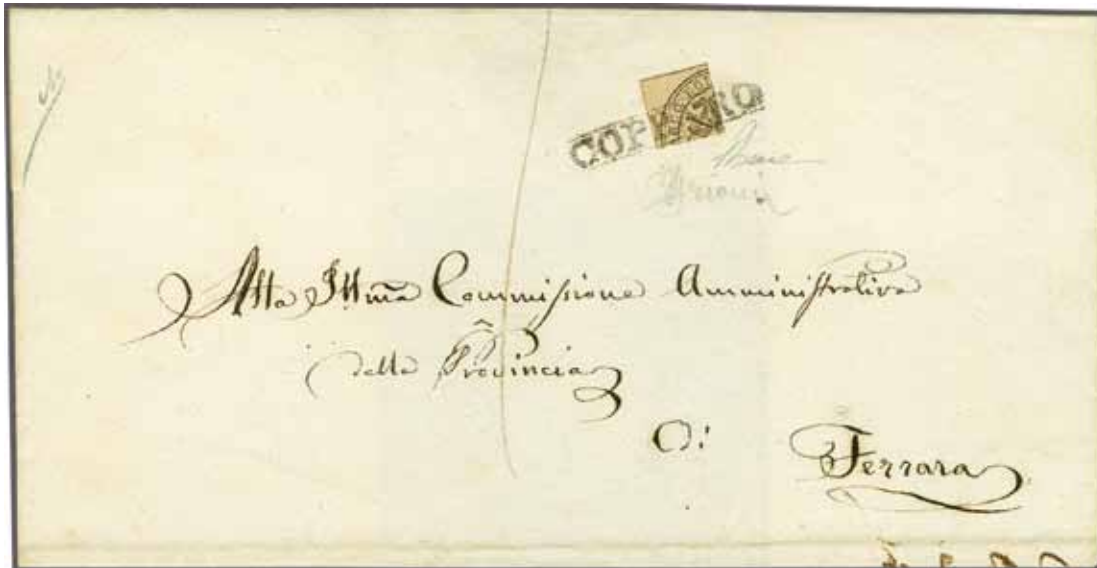 COP RO
Alla Illma Commissione Amministrativa
della Provincia
Di
Ferrara